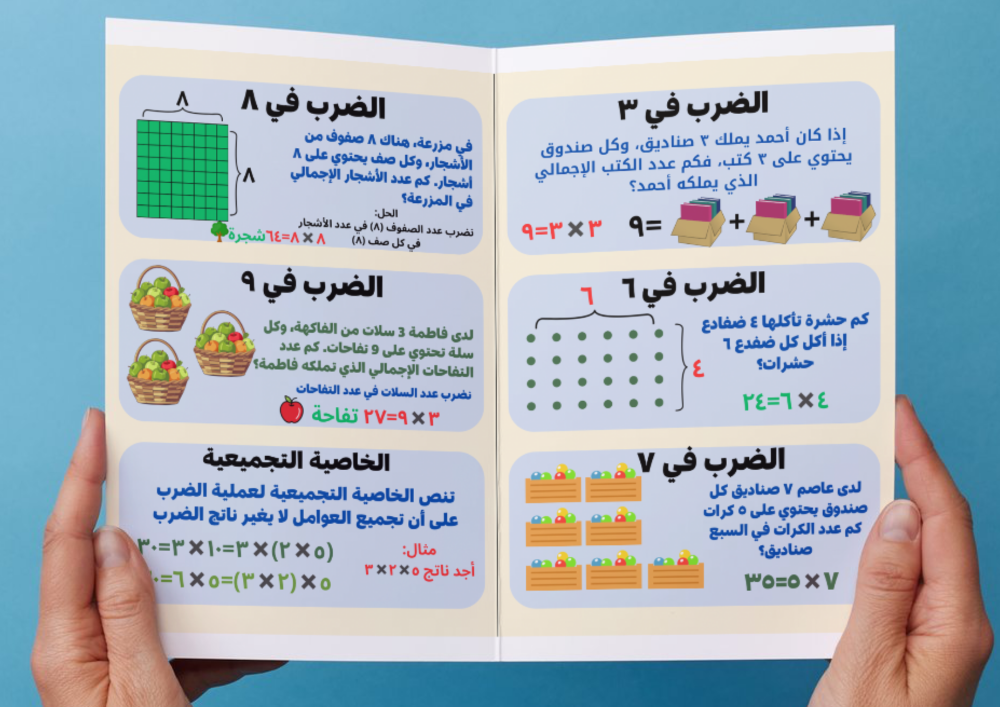 الضرب في ٣
إذا كان أحمد يملك ٣ صناديق، وكل صندوق
يحتوي على ٣ كتب، فكم عدد الكتب الإجمالي
الذي يملكه أحمد؟
+ + =٩
٣ × ٣=٩
الضرب في ٦
٦
كم حشرة تأكلها ٤ ضفادع
إذا أكل كل ضفدع ٦
حشرات؟
٤
٤ × ٦=٢٤
الضرب في ٧
لدى عاصم ٧ صناديق كل
صندوق يحتوي على ٥ كرات
كم عدد الكرات في السبع
صناديق؟
٧ × ٥=٣٥
الضرب في ٨
٨
في مزرعة، هناك ٨ صفوف من
الأشجار، وكل صف يحتوي على ٨
أشجار. كم عدد الأشجار الإجمالي
في المزرعة؟
٨
الحل:
نضرب عدد الصفوف (٨) في عدد الأشجار
في كل صف (٨)
٨ × ٨=٦٤شجرة
الضرب في ٩
لدى فاطمة 3 سلات من الفاكهة، وكل
سلة تحتوي على 9 تفاحات. كم عدد
التفاحات الإجمالي الذي تملكه فاطمة؟
نضرب عدد السلات في عدد التفاحات
٣ × ٩=٢٧ تفاحة
الخاصية التجميعية
تنص الخاصية التجميعية لعملية الضرب
على أن تجميع العوامل لا يغير ناتج الضرب
مثال:
أجد ناتج ٥ × ٢ × ٣
(٥ × ٢) × ٣=١٠ × ٣=٣٠
٥ × (٢ × ٣)=٥ × ٦=